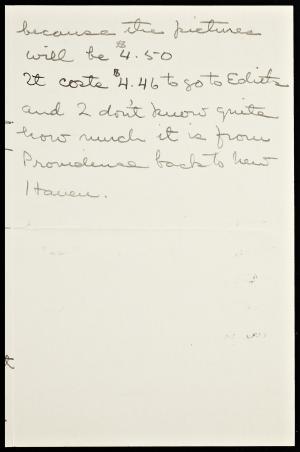 because the pictures
will be $4.50
It costs $4.46 to go to Edith's
and I don't know quite
how much it is from
Providence back to New
Haven.